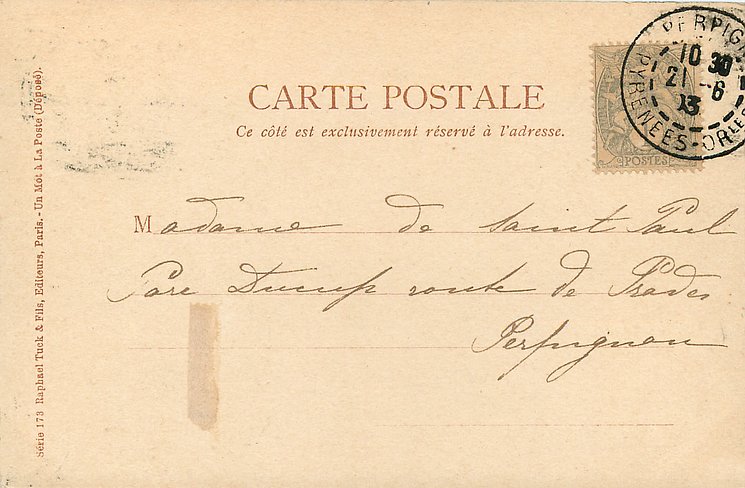 CARTE POSTALE
Ce côté est exclusivement réservé à l'adresse.
PERPIGN
10 30
21 -6
03
PYRENEES-ORLES
POSTES
Madame de Saint Paul
Parc Ducup route de Prades
Perpignan
Série 173 Raphael Tuck & Fils, Editeurs, Paris. - Un Mot à La Poste (Déposé).